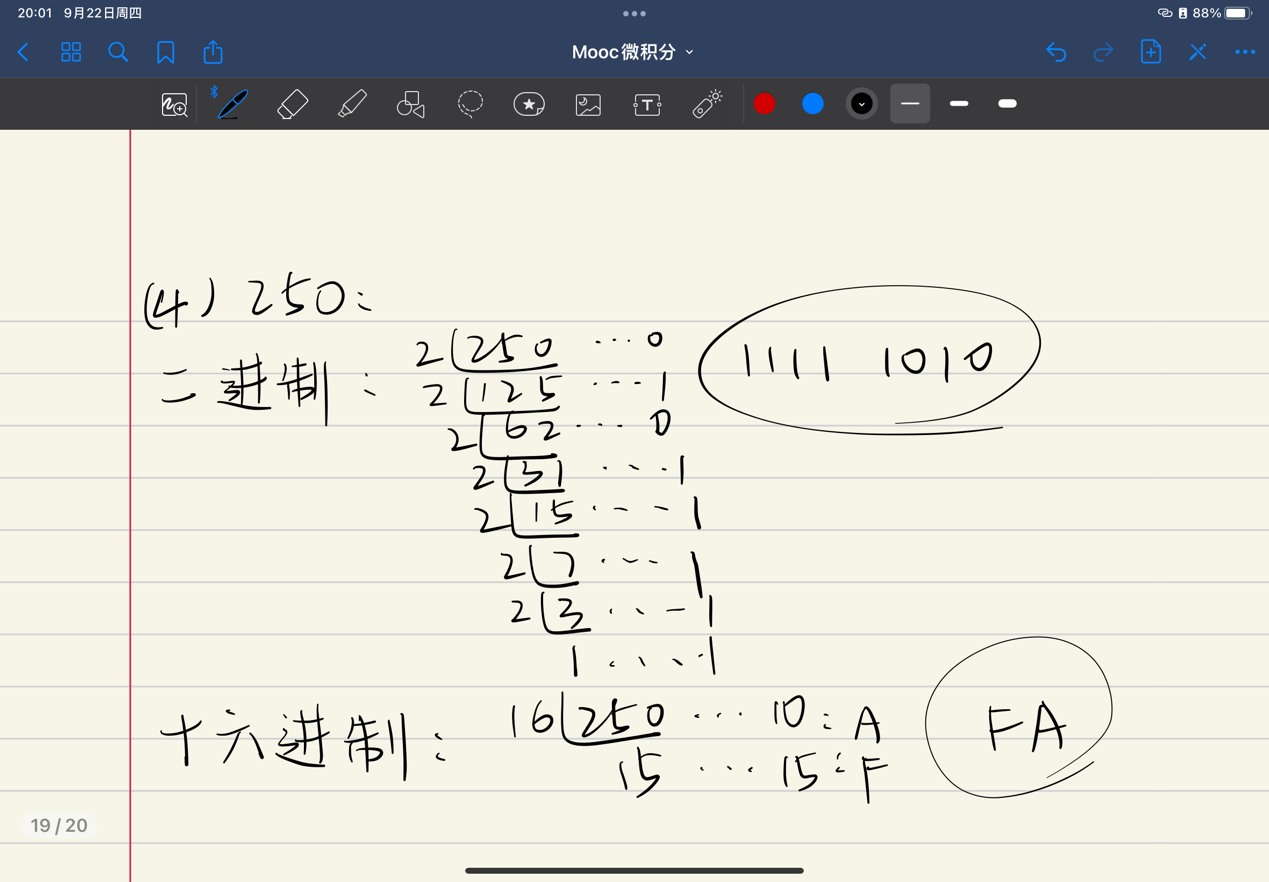 20:01 9月22日周四
88%
Mooc微积分
(4) 250:
二进制:
2 250 ... 0
2 125 ... 1
2 62 ... 0
2 31 ... 1
2 15 ... 1
2 7 ... 1
2 3 ... 1
1 .... 1
1111 1010
十六进制:
16 250 ... 10: A
15 ... 15: F
FA
19 / 20